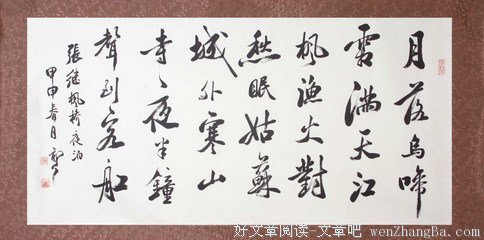 月落烏啼
霜滿天江
楓漁火對
愁眠姑蘇
城外寒山
寺夜半鐘
聲到客船
張繼楓橋夜泊
甲申春月
好文章阅读-文章吧 wenZhangBa.com